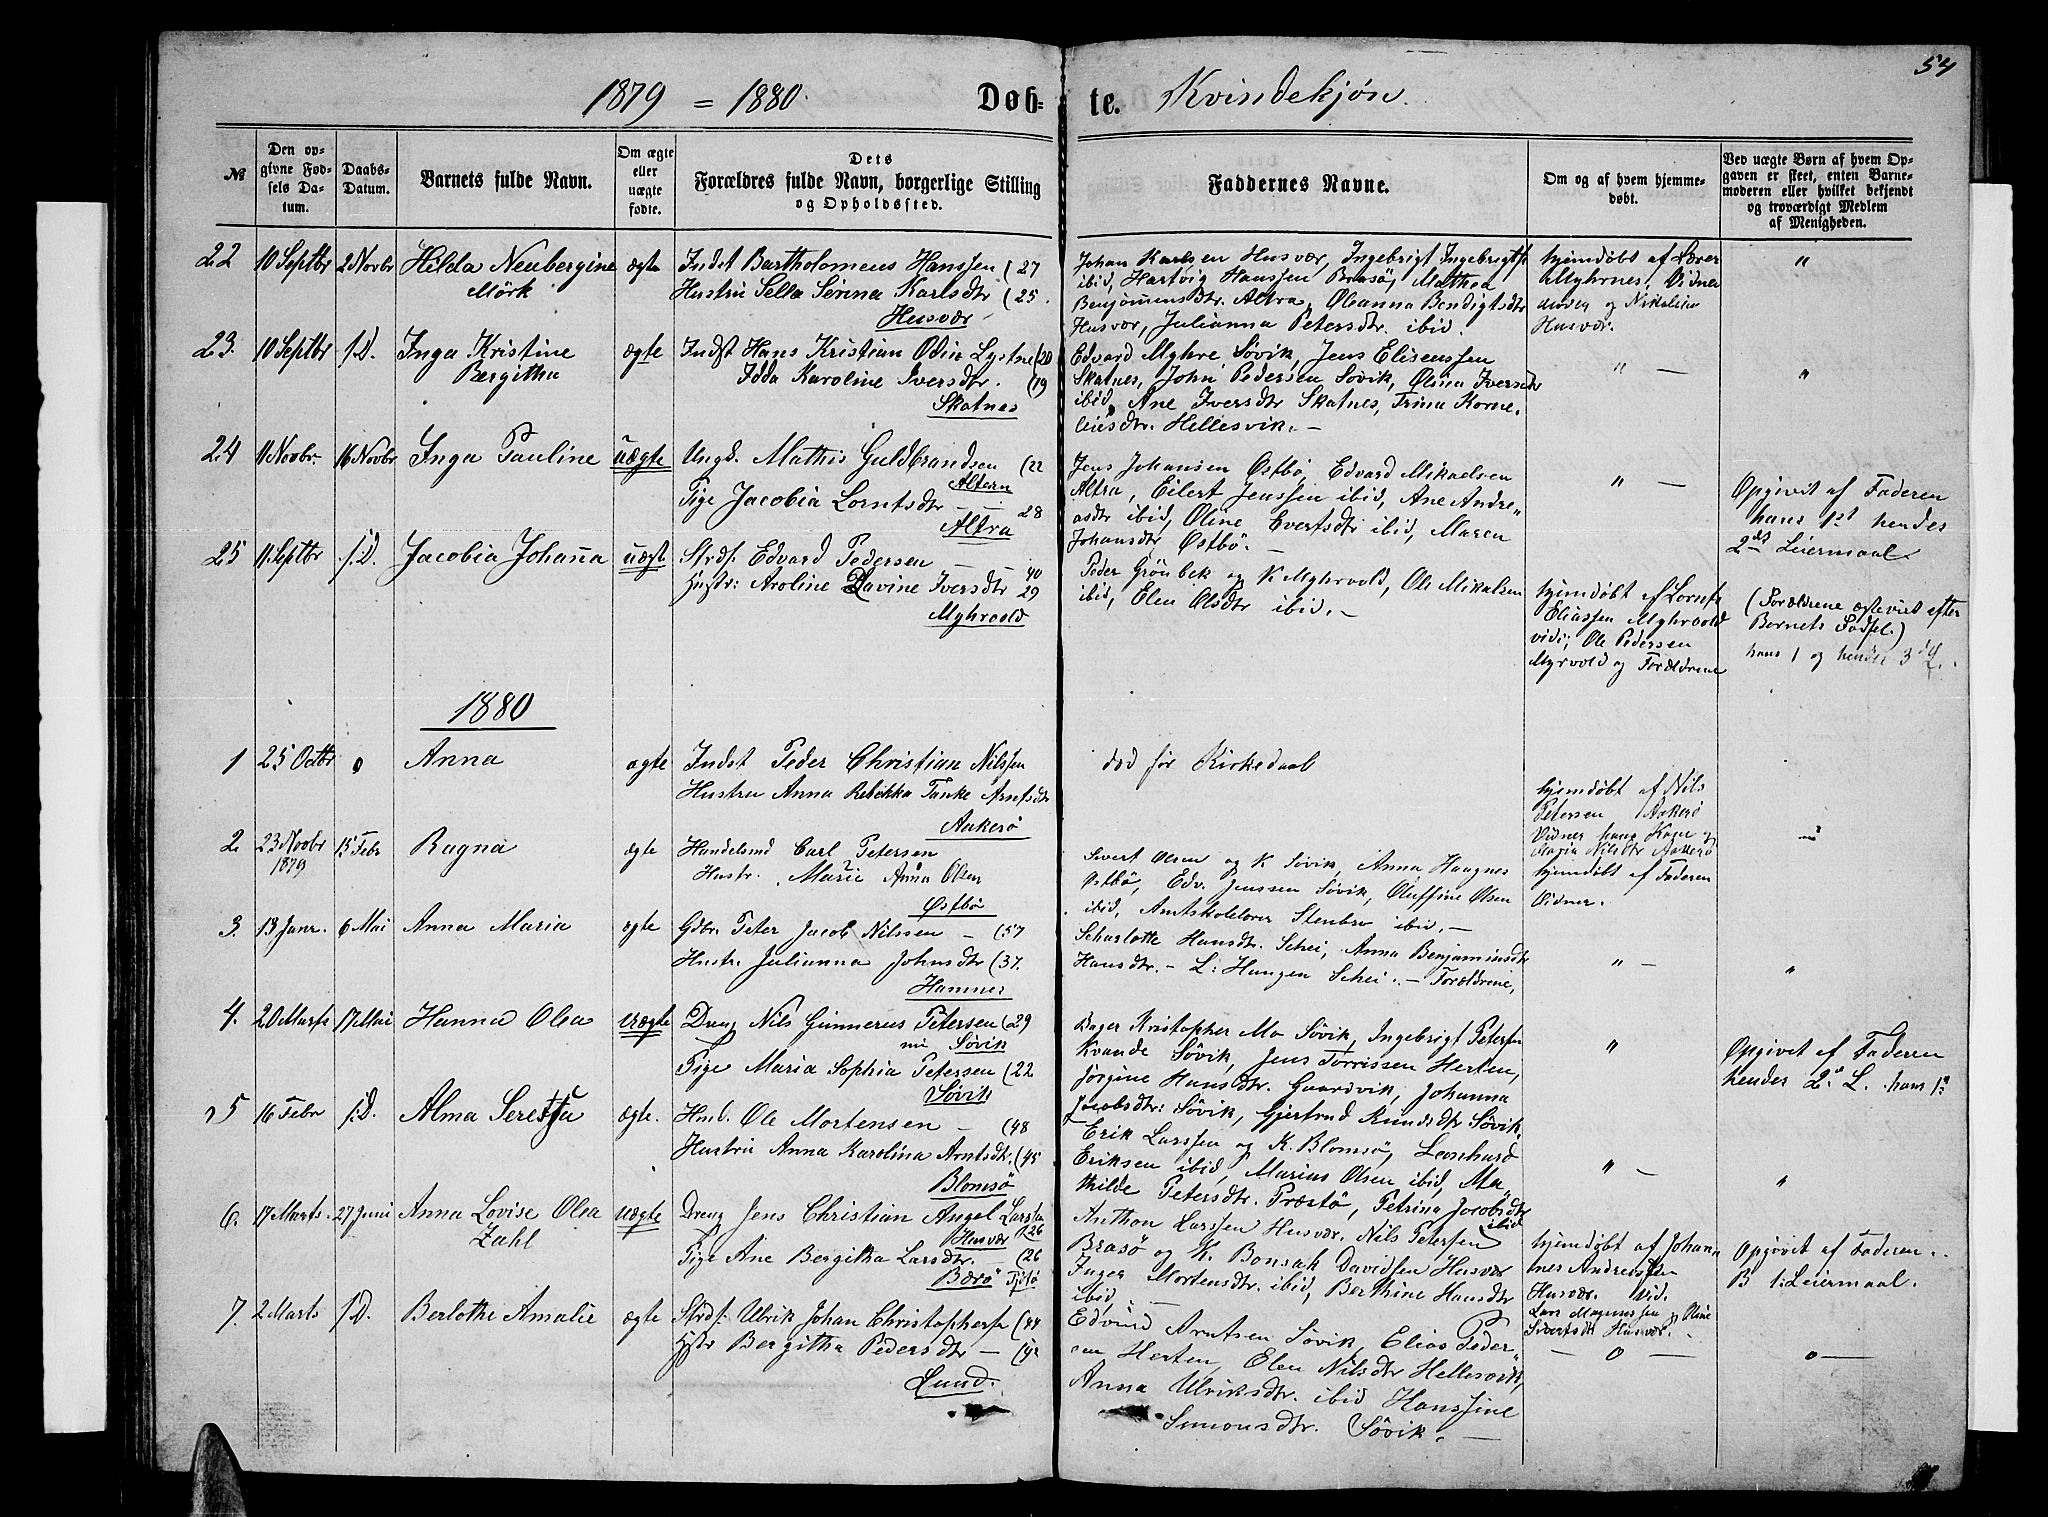 54
1879 = 1880. Döb= te. Kvindekjøn.
№
Den op-
givne Fød-
sels Da-
tum.
Daabs-
Datum.
Barnets fulde Navn.
Om ægte
eller
uægte
fødte.
Dets
Forældres fulde Navn, borgerlige Stilling
og Opholdssted.
Faddernes Navne.
Om og af hvem hjemme-
døbt.
Ved uægte Børn af hvem Op-
gaven er skeet, enten Barne-
moderen eller hvilket bekjendt
og troværdigt Medlem
af Menigheden.
22 10 Septbr 2 Novbr Hilda Neubergine ægte Indst Bartholomeus Hanssen (27
Mörk Hustru Sella Serina Karlsdtr (25.
Husvær
Johan Karlsen Husvær, Ingebrigt Ingebrigts
ibid, Hartvig Hanssen Brasø, Mathea
Benjaminsdtr. Altra, Oleanna Bendigtsdtr
Husvær, Julianna Petersdtr. ibid.
hjemdöbt af Lærer
Myhrnes, Vidner
Moder og Nikolein
Husvær.
"
23. 10 Septbr s.D. Inga Kristine ægte Indst Hans Kristian Odin Lystne (20
Bergitha Idda Karoline Iversdtr. (19
Skatnes
Edvard Myhre Søvik, Jens Elisenssen
Skatnes, John Pedersen Søvik, Olina Iversdtr
ibid, Ane Iversdtr Skatnes, Trina Korne-
leusdtr. Hellesvik. -
" -
"
24 11 Novbr. 16 Novbr Inga Pauline uægte Ungk. Mathis Guldbrandsen (22
Altern
Pige Jacobia Lorntsdtr - - 28
Altra
Jens Johansen Østbö, Edvard Mikaelsen
Altra, Eilert Jenssen ibid, Ane Andre-
asdtr ibid, Oline Evertsdtr ibid, Maren
Johansdtr Østbö. -
" -
Opgivet af Faderen
hans 1st hendes
2det Leiermaal
25 11 Septbr s.D. Jacobia Johanna uægt Strds. Edvard Pedersen - - 40
Hustr: Aroline Lavine Iversdtr 29
Myhrvold
Peder Grönbek og K Myhrvold, Ole Mikalsen
ibid, Elen Olsdtr ibid. -
hjemdöbt af Lornts
Eliassen Myhrvold
vidi; Ole Pedersen
Myrvold og Forældrene
(Forældrene ægteviet efter
Barnets Fødsel.)
hans 1 og hendes 3 die L.
1880
1 25 Octbr 0 Anna ægte Indst Peder Christian Nilssen
Hustru Anna Rebekka Tanke Arntsdtr
Aakerö
død før Kirkedaab
hjemdöbt af Nils
Petersen Aakerö
Vidner hans Kone og
Maria Nilsdtr Aakerö
"
2. 23 Novbr 15 Febr Ragna ægte Handelsmd Carl Petersen
1879 Hustr. Marie Anna Olsen
Østbö
Sivert Olsen og K Søvik, Anna Haagnes
Østbö, Edv. Jenssen Søvik, Oluffine Olsen
ibid, Amtskolelærer Stenbro ibid. -
hjemdöbt af Faderen
Vidner.
3. 13 Janr. 6 Mai Anna Maria ægte Gdbr. Peter Jacob Nilssen - (57
Hustr. Julianna Johnsdtr (37.
Hamnes
Scharlotte Hansdtr. Schei, Anna Benjaminsdtr
Hansdtr. - L: Haugen Schei. - Forældrene,
" -
"
4. 20 Marts 17 Mai Hanna Olea uægte Dreng Nils Gunnerus Petersen (29
nu Søvik
Pige Maria Sophia Petersen (22
Søvik
Bager Kristopher Mo Søvik, Ingebrigt Peterssen
Kvande Søvik, Jens Torrissen Herten,
Jørgine Hansdtr. Gaardvik, Johanna
Jacobsdtr: Søvik, Gjertrud Knudsdtr Søvik.
"
Opgivet af Faderen
hendes 2. L. hans 1.
5 16 Febr s.D. Alma ægte. Hmd. Ole Mortensen - (48
Hustru Anna Karolina Arntsdtr. (45
Blomsö
Erik Larssen og K. Blomsø, Leonhard
Eriksen ibid, Marius Olsen ibid, Ma-
thilde Petersdtr. Præstö, Petrina Jacobsdtr
ibid
" -
"
6. 17 Marts. 27 Juni Anna Lovise Olea uægte Dreng Jens Christian Angel Larssen
Zahl Husvær (26
Pige Ane Bergitha Larsdtr. - (26
Bærö Tjötö
Anthon Larssen Husvær. Nils Petersen
Brasø og K. Bonsak Davidsen Husvær
Inger Mortensdtr. ibid, Berthine Hansdtr
ibid, -
hjemdöbt af Johan-
nes Andreassen
Husvær. Vid.
Lars Magnussen og Oline
Sivertsdtr Husvær. -
Opgivet af Faderen.
B 1. Leiermaal.
7. 2 Marts s.D. Berlothe Amalie ægte Strds: Ulrik Johan Christophers (44
Hstr Bergitha Pedersdtr - (42
Lund.
Edvind Arntsen Søvik, Elias Peder-
sen Herten, Elen Nilsdtr Hellesvik,
Anna Ulriksdtr. ibid Hanssine
Simonsdtr. Søvik. -
- 0 -
0 -